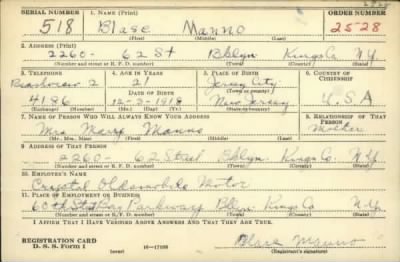 SERIAL NUMBER 1. NAME (Print) ORDER NUMBER
518 Blase Manno 2528
(First) (Middle) (Last)
2. ADDRESS (Print)
2260- 62 St Bklyn Kings Co. N.Y.
(Number and street or R. F. D. number) (Town) (County) (State)
3. TELEPHONE 4. AGE IN YEARS 5. PLACE OF BIRTH 6. COUNTRY OF CITIZENSHIP
2 21 Jersey City
DATE OF BIRTH
4186 12-3-1918 New Jersey U.S.A
(Exchange) (Number) (Mo.) (Day) (Yr.) (State or country)
7. NAME OF PERSON WHO WILL ALWAYS KNOW YOUR ADDRESS 8. RELATIONSHIP OF THAT PERSON
Mrs. Mary Manno Mother
(Mr., Mrs., Miss) (First) (Middle) (Last)
9. ADDRESS OF THAT PERSON
2260- 62 Street Bklyn. Kings Co. N.Y.
(Number and street or R. F. D. number) (Town) (County) (State)
10. EMPLOYER'S NAME
Crystal Oldsmobile Motor
11. PLACE OF EMPLOYMENT OR BUSINESS
60th St & Bay Parkway Bklyn. Kings Co N.Y.
(Number and street or R. F. D. number) (Town) (County) (State)
I AFFIRM THAT I HAVE VERIFIED ABOVE ANSWERS AND THAT THEY ARE TRUE.
REGISTRATION CARD
D. S. S. Form 1 (over) 16—17105 Blase Manno
(Registrant's signature)